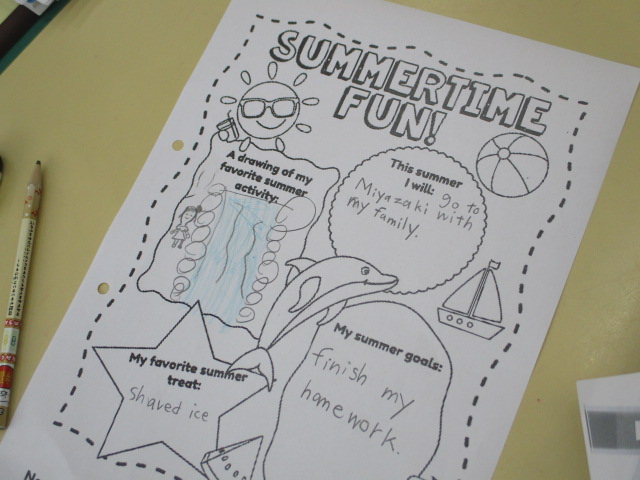 SUMMERTIME
FUN!
A drawing of my
favorite summer
activity:
This summer
I will: go to
Miyazaki with
my family.
My favorite summer
treat:
shaved ice
My summer goals:
finish my
homework.